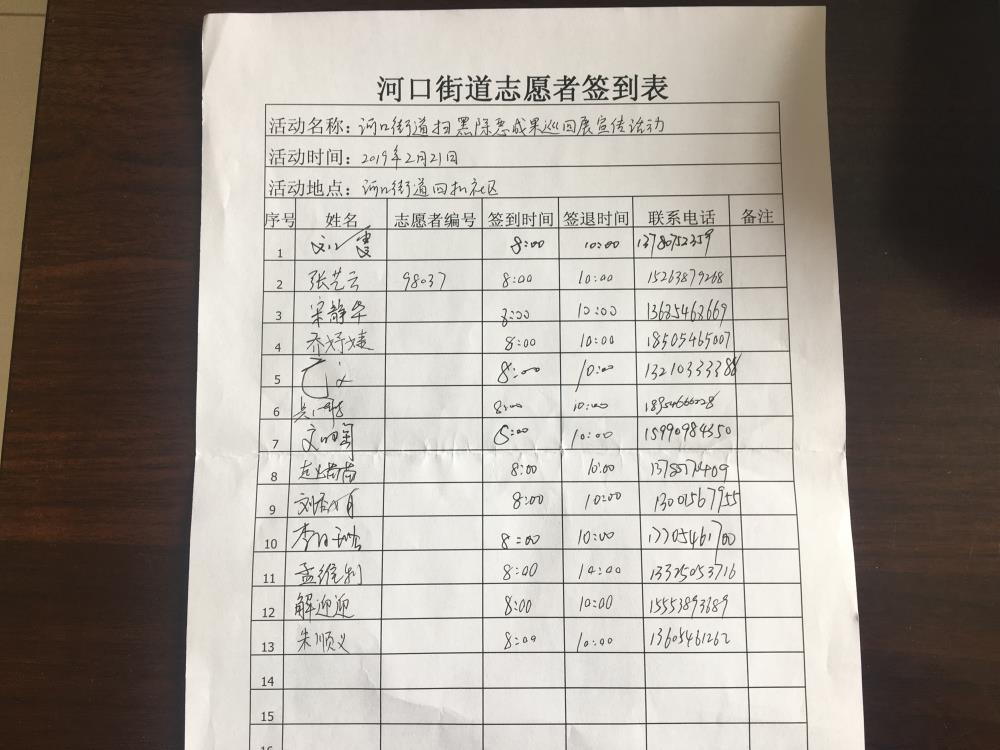 河口街道志愿者签到表
活动名称：河口街道扫黑除恶成果巡回展宣传活动
活动时间：2019年2月21日
活动地点：河口街道四扣社区
序号 姓名 志愿者编号 签到时间 签退时间 联系电话 备注
1 8:00 10:00 13780752359
2 张艺云 98037 8:00 10:00 15263879268
3 宋静华 8:00 10:00 13685462669
4 乔婷婕 8:00 10:00 18505465007
5 8:00 10:00
6 8:00 10:00
7 8:00 10:00 15990984350
8 8:00 10:00
9 8:00 10:00 13001567955
10 8:00 10:00
11 孟维利 8:00 10:00 13325053716
12 解迎迎 8:00 10:00 15553893689
13 朱顺义 8:00 10:00 13605461262
14
15
16